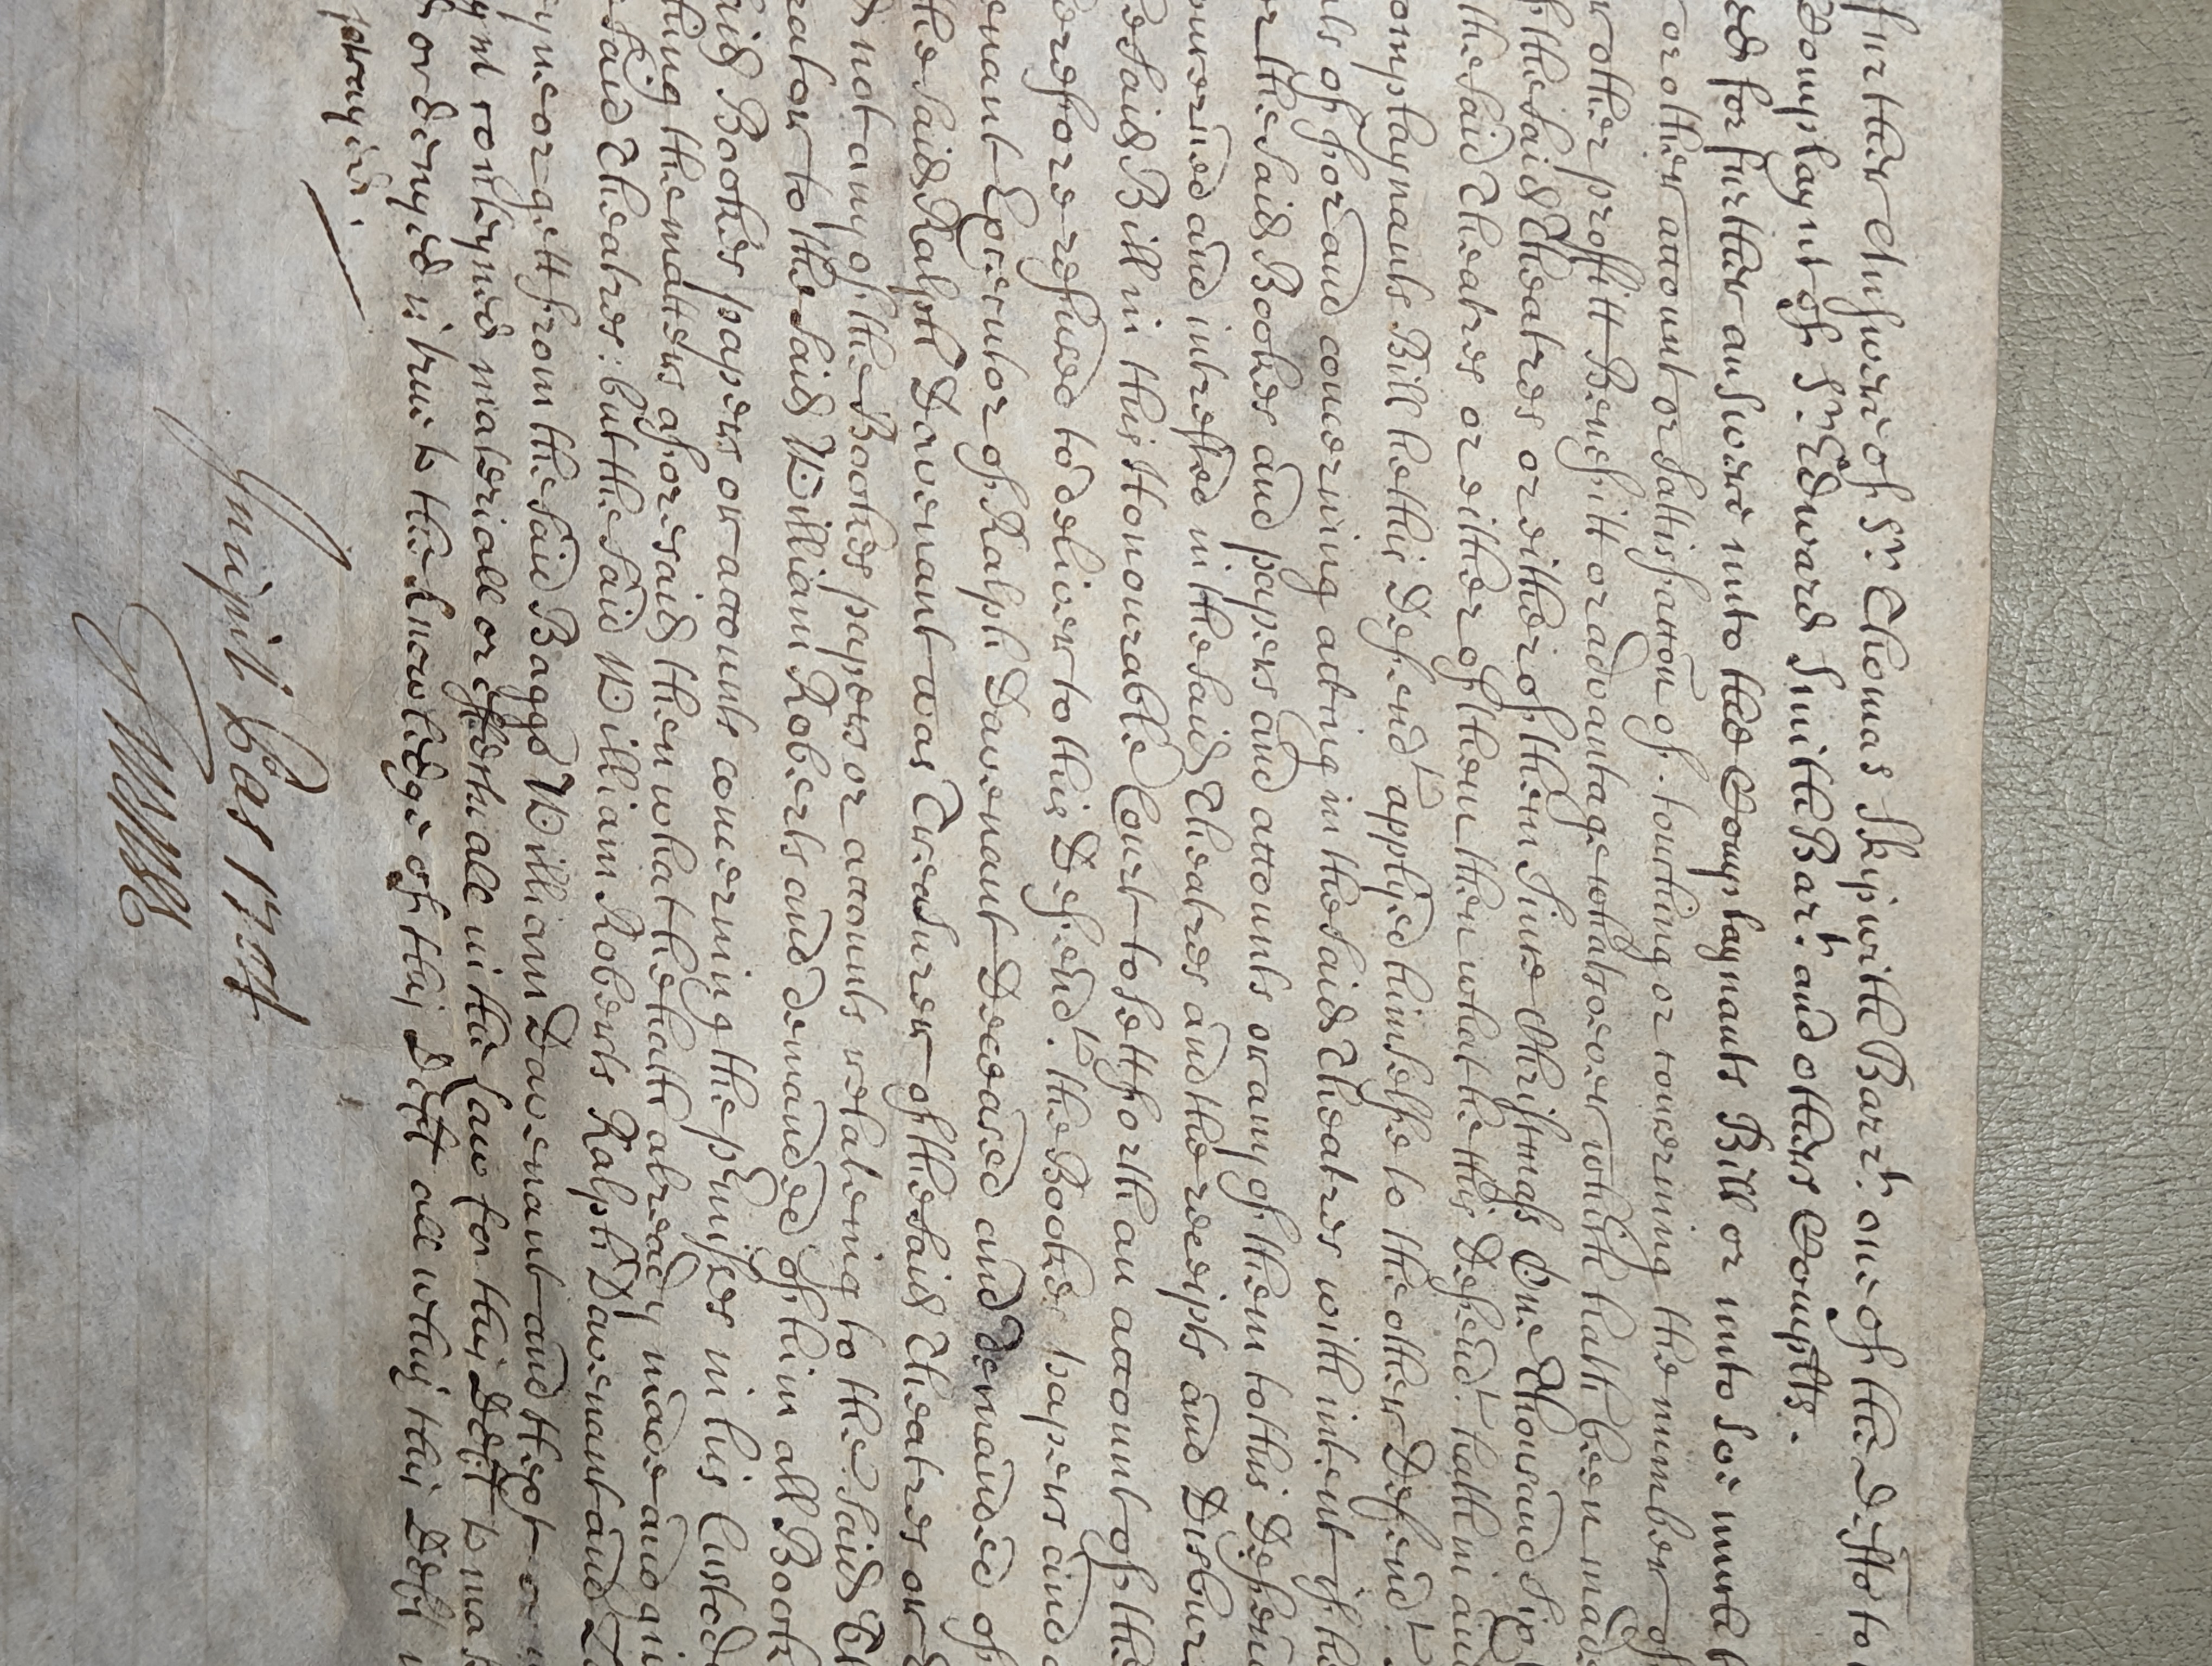 further Answere of Sr. Thomas Skipwith Barrt. one of the Defts to
Complaynt of Sr. Edward Smith Bart. and others Complts.
for further answere unto the Complaynants Bill or unto soe much
or other account or sattisfaccon of touching or concerning the number of
other proffitt Benefitt or advantage whatsoever which hath been made
of the said Theatres or either of them Since Christmass One Thousand Six
the said Theatres or either of them then what hee this Defendt. hath in and
Complaynants Bill hee this Defendt. applyed himselfe to the other Defendt.
of for and concerning acting in the said Theatres with intent if he
or the said Bookes and papers and accounts or any of them to this Defend
and intrested in the said Theatres and the receipts and Disbur
said Bill in this Honourable Court to sett forth an account of the
refused to deliver to this Defendt. the Bookes papers and
Executor of Ralph Davenant Deceased and demanded of
the said Ralph Davenant was Treasurer of the said Theatres or
not any of the Bookes papers or accounts relateing to the said
to the said William Roberts and demanded of him all Books
said Bookes papers or accounts concerning the pmisses in his Custod
the matters aforesaid then what he hath already made and
said Theatres: but the said William Roberts Ralph Davenant and
or gett from the said Baggs William Davenant and
conteyned materiall or effectuall in the Law for this Deft to
or denyed is true to the knowledge of this Deft all which this Deft
prayed.